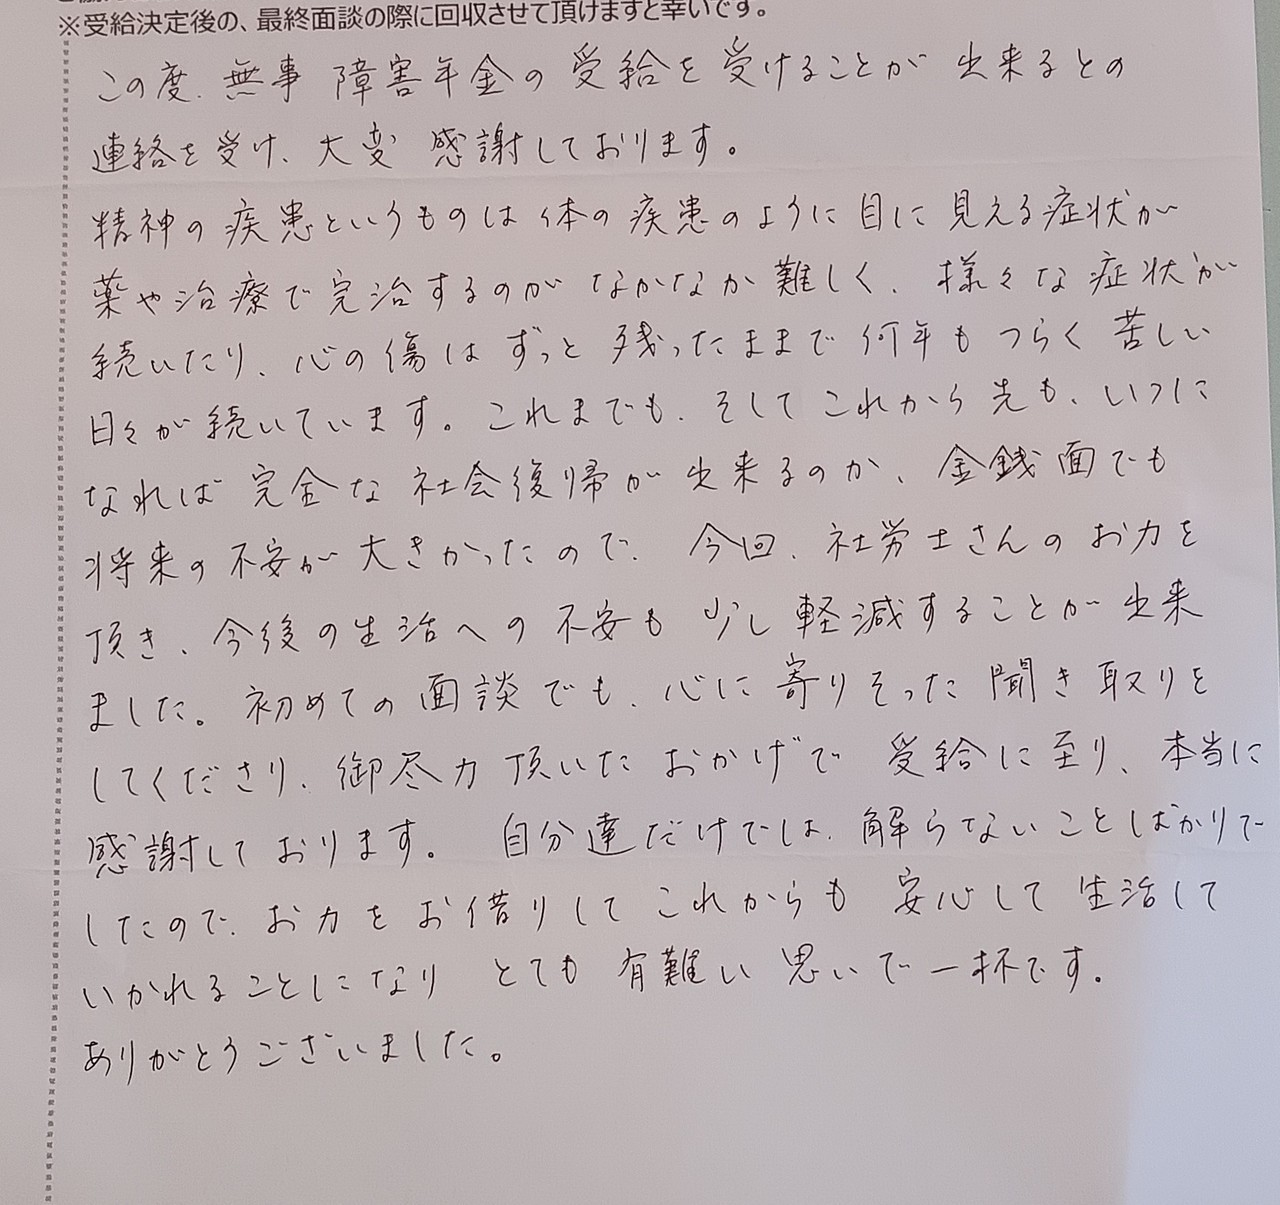 ※受給決定後の、最終面談の際に回収させて頂けますと幸いです。
この度、無事 障害年金の受給を受けることが出来るとの
連絡を受け、大変 感謝しております。
精神の疾患というものは体の疾患のように目に見える症状が
薬や治療で完治するのがなかなか難しく、様々な症状が
続いたり、心の傷はずっと残ったままで何年もつらく苦しい
日々が続いています。これまでも、そしてこれから先も、いつに
なれば完全な社会復帰が出来るのか、金銭面でも
将来の不安が大きかったので、今回、社労士さんのお力を
頂き、今後の生活への不安も少し軽減することが出来
ました。初めての面談でも、心に寄りそった聞き取りを
してくださり、御尽力頂いたおかげで受給に至り、本当に
感謝しております。 自分達だけでは、解らないことばかりで
したので、お力をお借りしてこれからも安心して生活して
いかれることになりとても有難い思いで一杯です。
ありがとうございました。